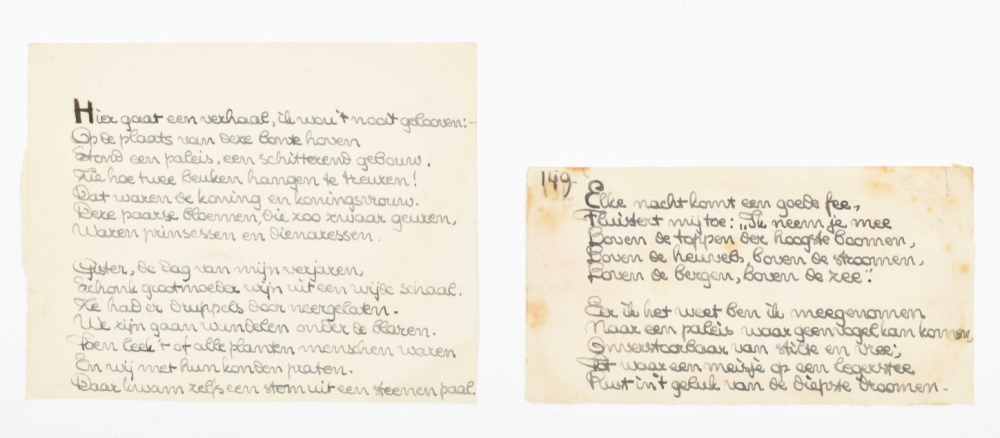 Hier gaat een verhaal, ik wou't nooit gelooven: -
Op de plaats van deze bonte hoven
Stond een paleis, een schitterend gebouw.
Zie hoe twee beuken hangen te treuren!
Dat waren de koning en koningsvrouw.
Deze paarse bloemen, die zoo zwaar geuren,
Waren prinsessen en dienaressen.
Gister, de dag van mijn verjaren,
Schonk grootmoeder wijn uit een wijde schaal.
Ze had er druppels door neergelaten. -
We zijn gaan wandelen onder de blaren.
Toen leek't of alle planten menschen waren
En wij met hun konden praten.
Daar kwam zelfs een stem uit een steenen paal.
149
Elke nacht komt een goede fee,
Fluistert mij toe: „Ik neem je mee
Boven de toppen der hoogste boomen,
Boven de heuvels, boven de stroomen,
Boven de bergen, boven de zee".
Eer ik het weet ben ik meegenomen
Naar een paleis waar geen vogel kan komen,
Onverstoorbaar van stilte en vree;
Tot waar een meisje op een legerstee
Rust in't geluk van de diepste droomen. -